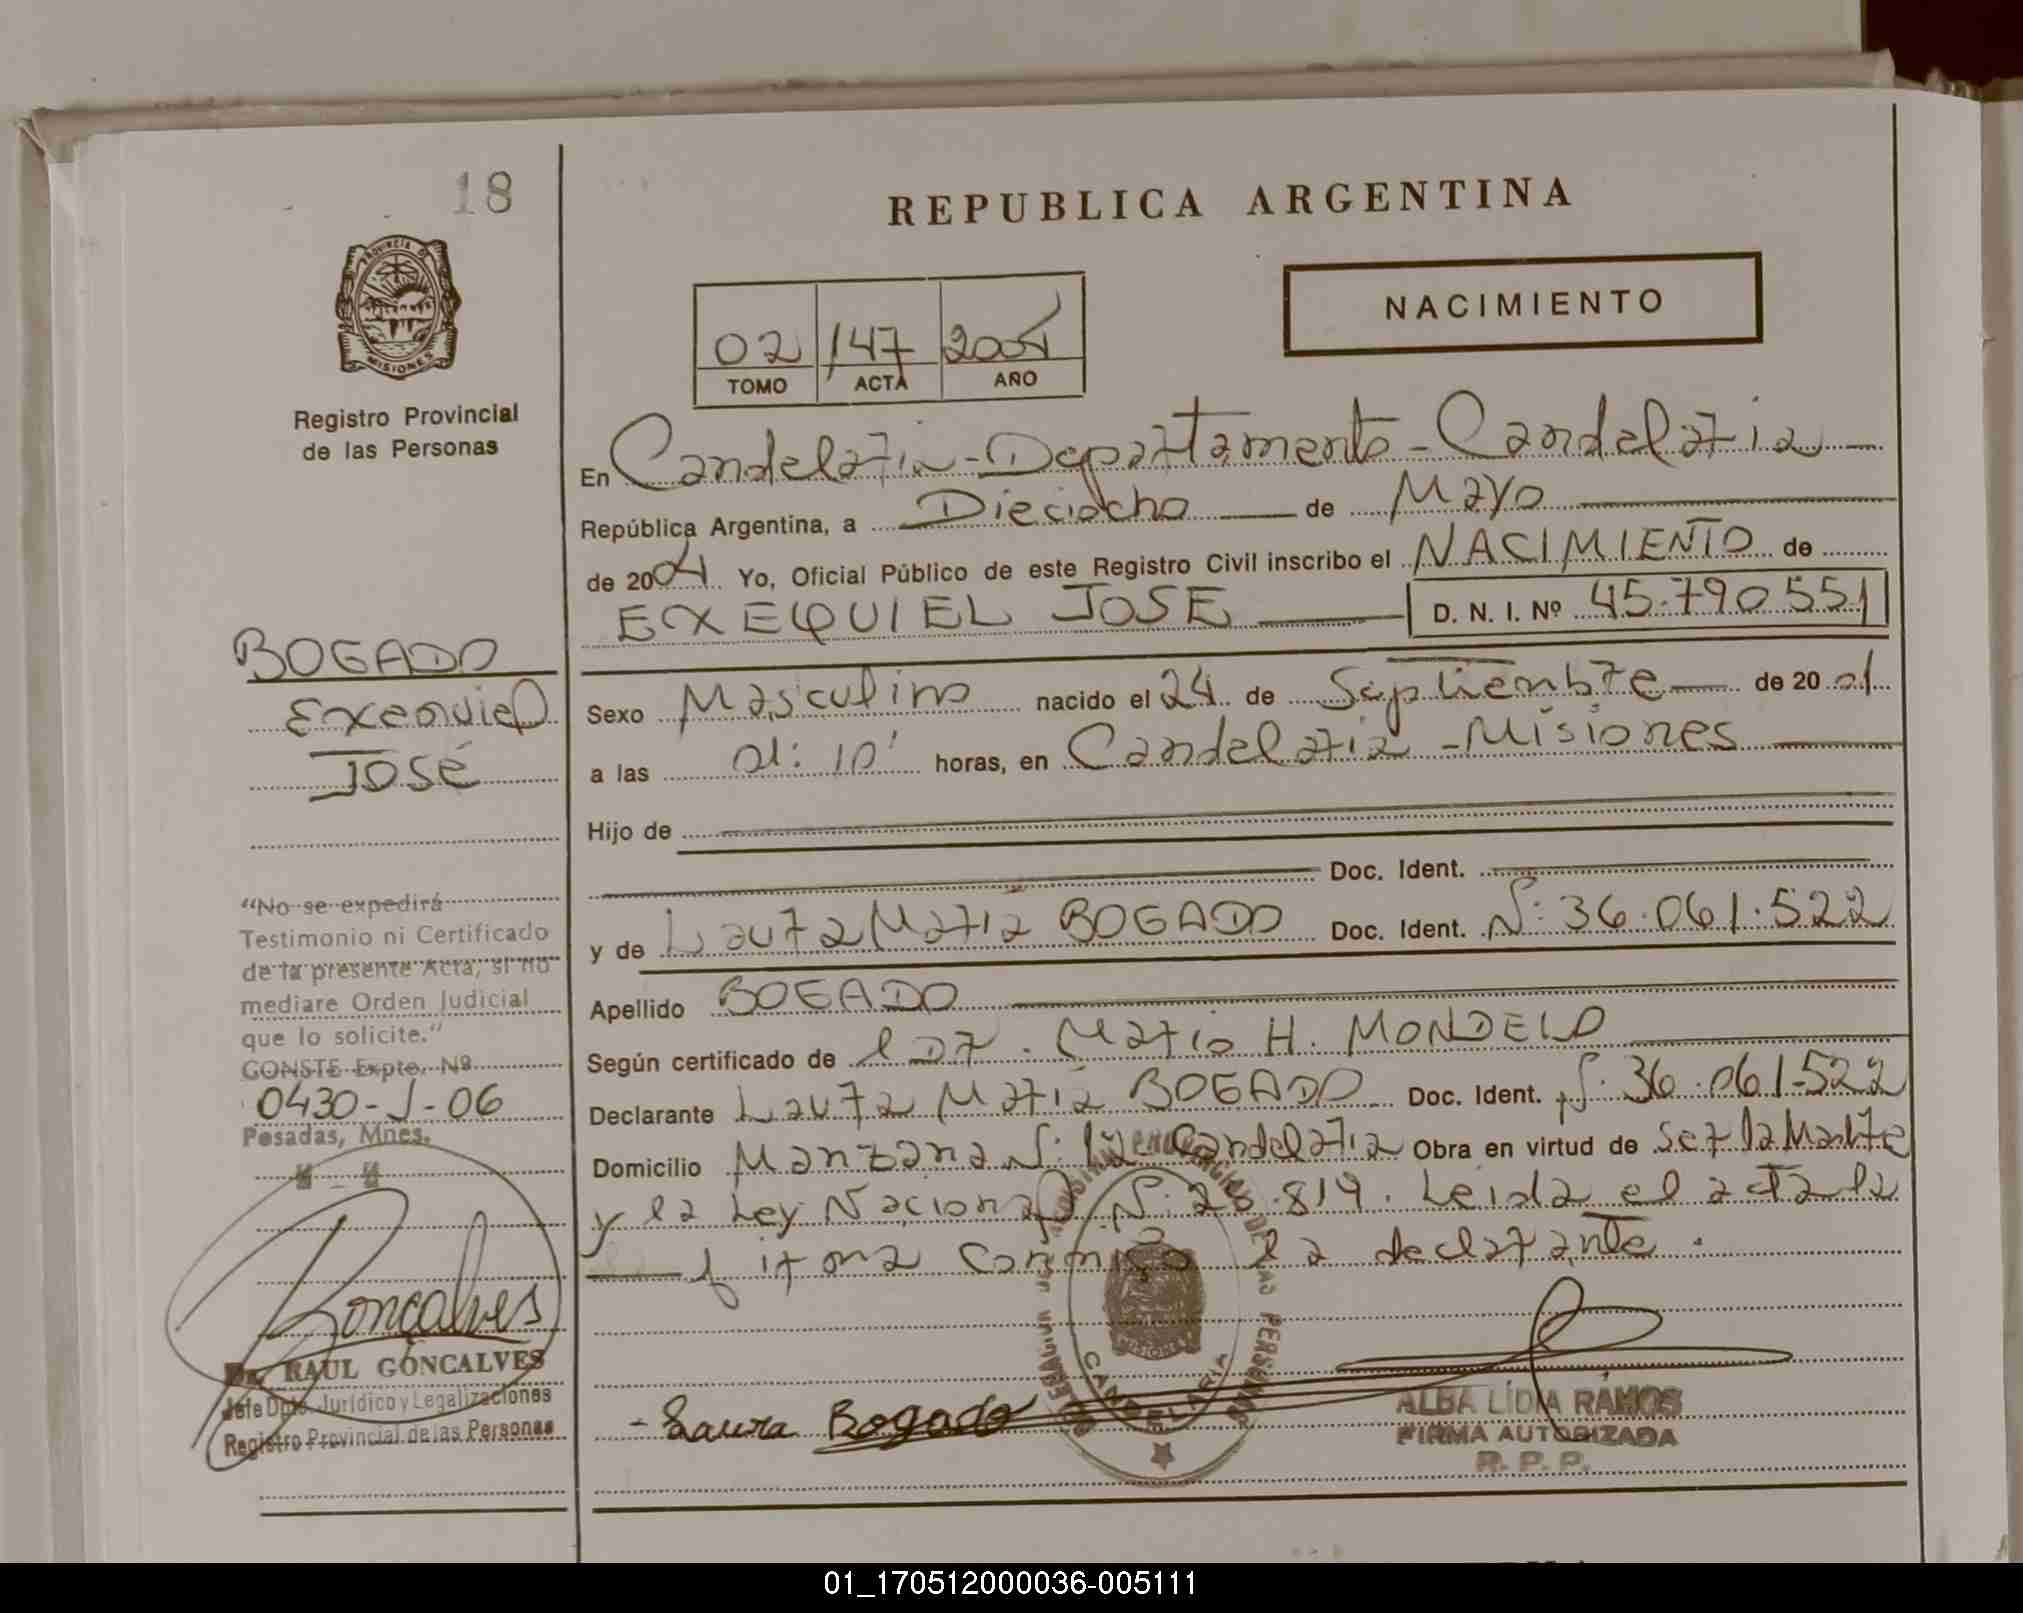 18
REPUBLICA ARGENTINA
PROVINCIA DE
MISIONES
Registro Provincial
de las Personas
02 147 2004
TOMO ACTA AÑO
NACIMIENTO
En Candelaria - Departamento - Candelaria
República Argentina, a Dieciocho de Mayo
de 2004 Yo, Oficial Público de este Registro Civil inscribo el NACIMIENTO de
EXEQUIEL JOSE D. N. I. Nº 45.790551
BOGADO
Exequiel
José
Sexo Masculino nacido el 24 de Septiembre de 20 01
a las 01:10' horas, en Candelaria - Misiones
Hijo de
Doc. Ident.
y de Laura Maria BOGADO Doc. Ident. Nº: 36.061.522
Apellido BOGADO
Según certificado de l Dr. Mario H. MONDELO
Declarante Laura Maria BOGADO Doc. Ident. Nº: 36.061.522
Domicilio Manzana Nº: Candelaria Obra en virtud de Ser la Madre
y la Ley Nacional Nº: 819. Leida el acta la
firma conmigo la declarante.
"No se expedirá
Testimonio ni Certificado
de la presente Acta, si no
mediare Orden Judicial
que lo solicite."
CONSTE Expte. Nº
0430-J-06
Posadas, Mnes.
Goncalves
Dr. RAUL GONCALVES
Jefe Dpto. Jurídico y Legalizaciones
Registro Provincial de las Personas
DE LAS PERSONAS
CANDELARIA
- Laura Bogado
ALBA LÍDIA RAMOS
FIRMA AUTORIZADA
R. P. P.
01_170512000036-005111